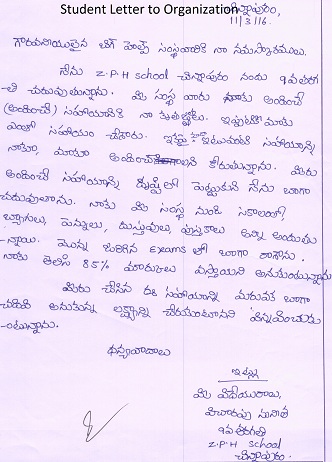 Student Letter to Organization
చిన్నాపురం,
11/3/16.
గౌరవనీయులైన బిగ్ హెల్ప్ సంస్థవారికి నా నమస్కారములు.
నేను Z.P.H school చిన్నాపురం నందు 9వ తరగ
-తి చదువుతున్నాను. మీ సంస్థ వారు నాకు అందించే
(అందించే) సహాయానికి నా కృతజ్ఞతలు. ఇప్పటికే మాకు
ఎంతో సహాయం చేశారు. ఇటువంటి సహాయాన్ని
నాకూ, మాకూ అందించాలని కోరుతున్నాను. మీరు
అందించే సహాయాన్ని దృష్టిలో పెట్టుకుని నేను బాగా
చదువుతాను. నాకు మీ సంస్థ నుండి సకాలంలో,
బ్యాగులు, పెన్నులు, దుస్తువులు, పుస్తకాలు అన్నీ అందుతు
-న్నాయి. మొన్న జరిగిన Exams లో బాగా రాశాను.
నాకు తెలిసి 85% మార్కులు వస్తాయని అనుకుంటున్నాను
మీరు చేసిన ఈ సహాయాన్ని మరువక బాగా
చదివి అనుకున్న లక్ష్యాన్ని చేరుకుంటానని విన్నవించుకు
-ంటున్నాను.
ధన్యవాదాలు
ఇట్లు
మీ విధేయురాలు,
సునీత
9వ తరగతి
Z.P.H school
చిన్నాపురం.